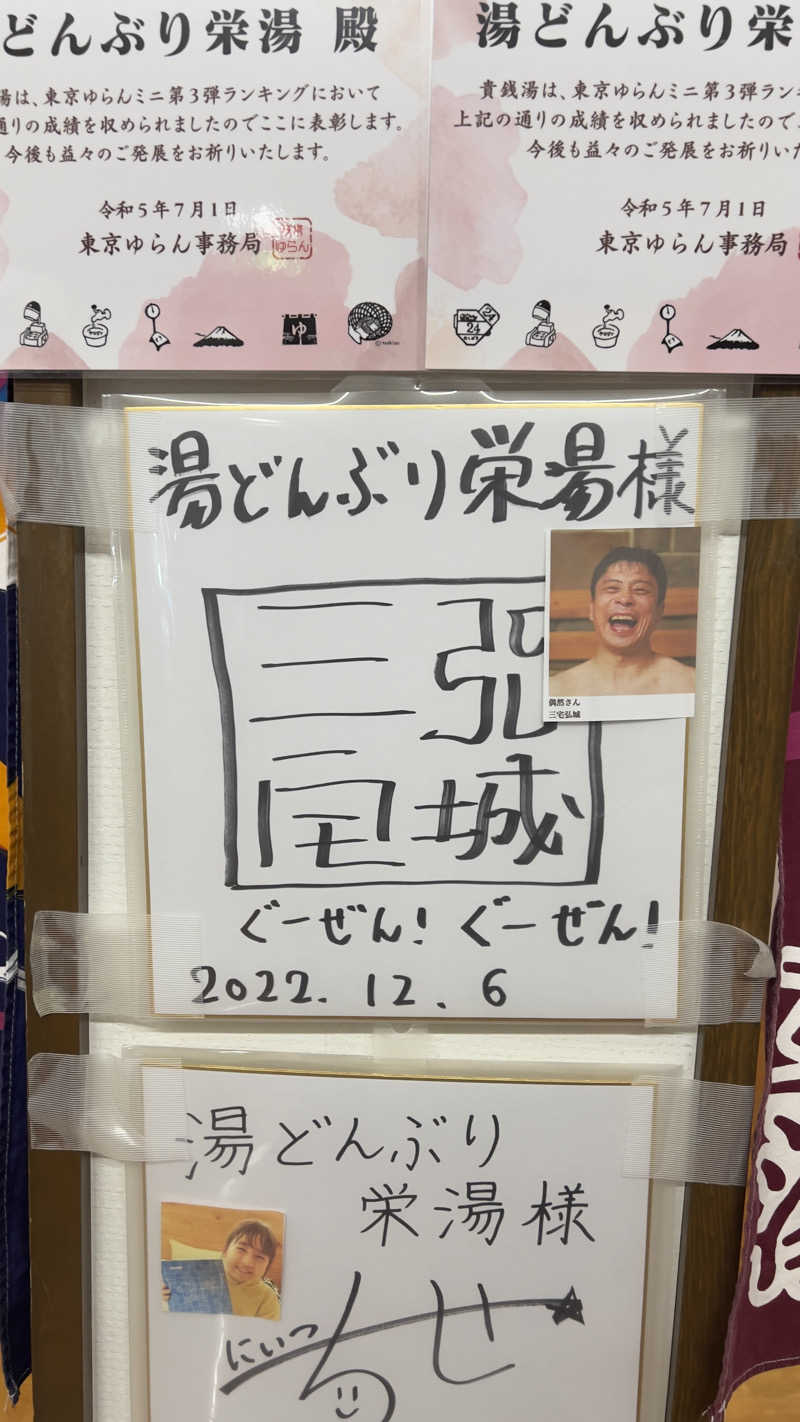 どんぶり栄湯 殿
湯は、東京ゆらんミニ第3弾ランキングにおいて
通りの成績を収められましたのでここに表彰します。
今後も益々のご発展をお祈りいたします。
令和5年7月1日
東京ゆらん事務局
ゆらん
ゆ
湯どんぶり栄
貴銭湯は、東京ゆらんミニ第3弾ラン
上記の通りの成績を収められましたので
今後も益々のご発展をお祈りいた
令和5年7月1日
東京ゆらん事務局
24
湯どんぶり栄湯様
三宅
弘城
偶然さん
三宅弘城
ぐーぜん!ぐーぜん!
2022.12.6
湯どんぶり
栄湯様
にいつ